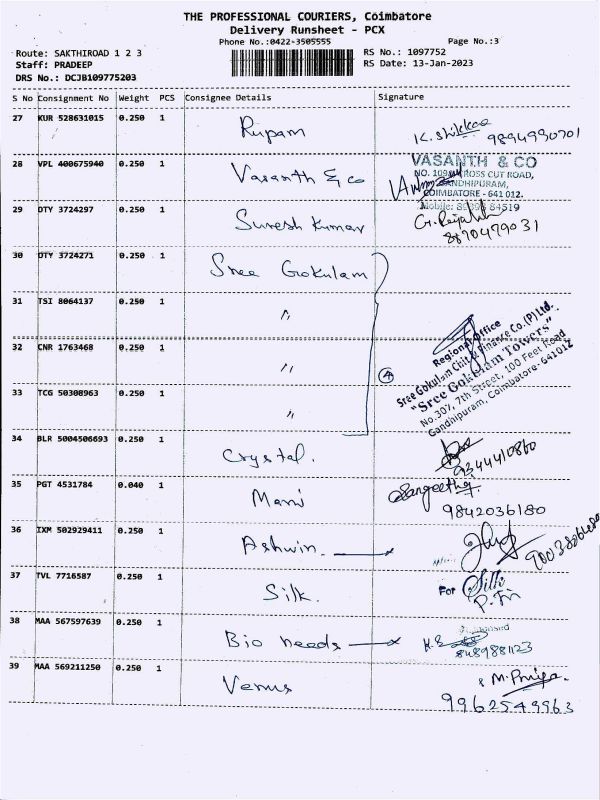 THE PROFESSIONAL COURIERS, Coimbatore
Delivery Runsheet - PCX
Phone No.:0422-3505555
Page No.:3
Route: SAKTHIROAD 1 2 3
RS No.: 1097752
Staff: PRADEEP
RS Date: 13-Jan-2023
DRS No.: DCJB109775203
S No Consignment No Weight PCS Consignee Details Signature
27 KUR 528631015 0.250 1 Rupam K. Shikkaa 9894990701
28 VPL 400675940 0.250 1 Vasanth & Co
VASANTH & CO
NO. 109, CROSS CUT ROAD,
GANDHIPURAM,
COIMBATORE - 641 012.
Mobile: 84519
29 DTY 3724297 0.250 1 Suresh Kumar
8870479031
30 DTY 3724271 0.250 1 Sree Gokulam
31 TSI 8064137 0.250 1 "
32 CNR 1763468 0.250 1 "
33 TCG 50308963 0.250 1 "
4
Regional Office
Sree Gokulam Chit & Finance Co.(P) Ltd.
"Sree Gokulam Towers".
No.307, 7th Street, 100 Feet Road
Gandhipuram, Coimbatore-641012
34 BLR 5004506693 0.250 1 Crystal.
9344410860
35 PGT 4531784 0.040 1 Mani Sangeetha
9842036180
36 IXM 502929411 0.250 1 Ashwin.
37 TVL 7716587 0.250 1 Silk. For Silk
38 MAA 567597639 0.250 1 Bio needs
8489881123
39 MAA 569211250 0.250 1 Venus M. Priya.
9962549963